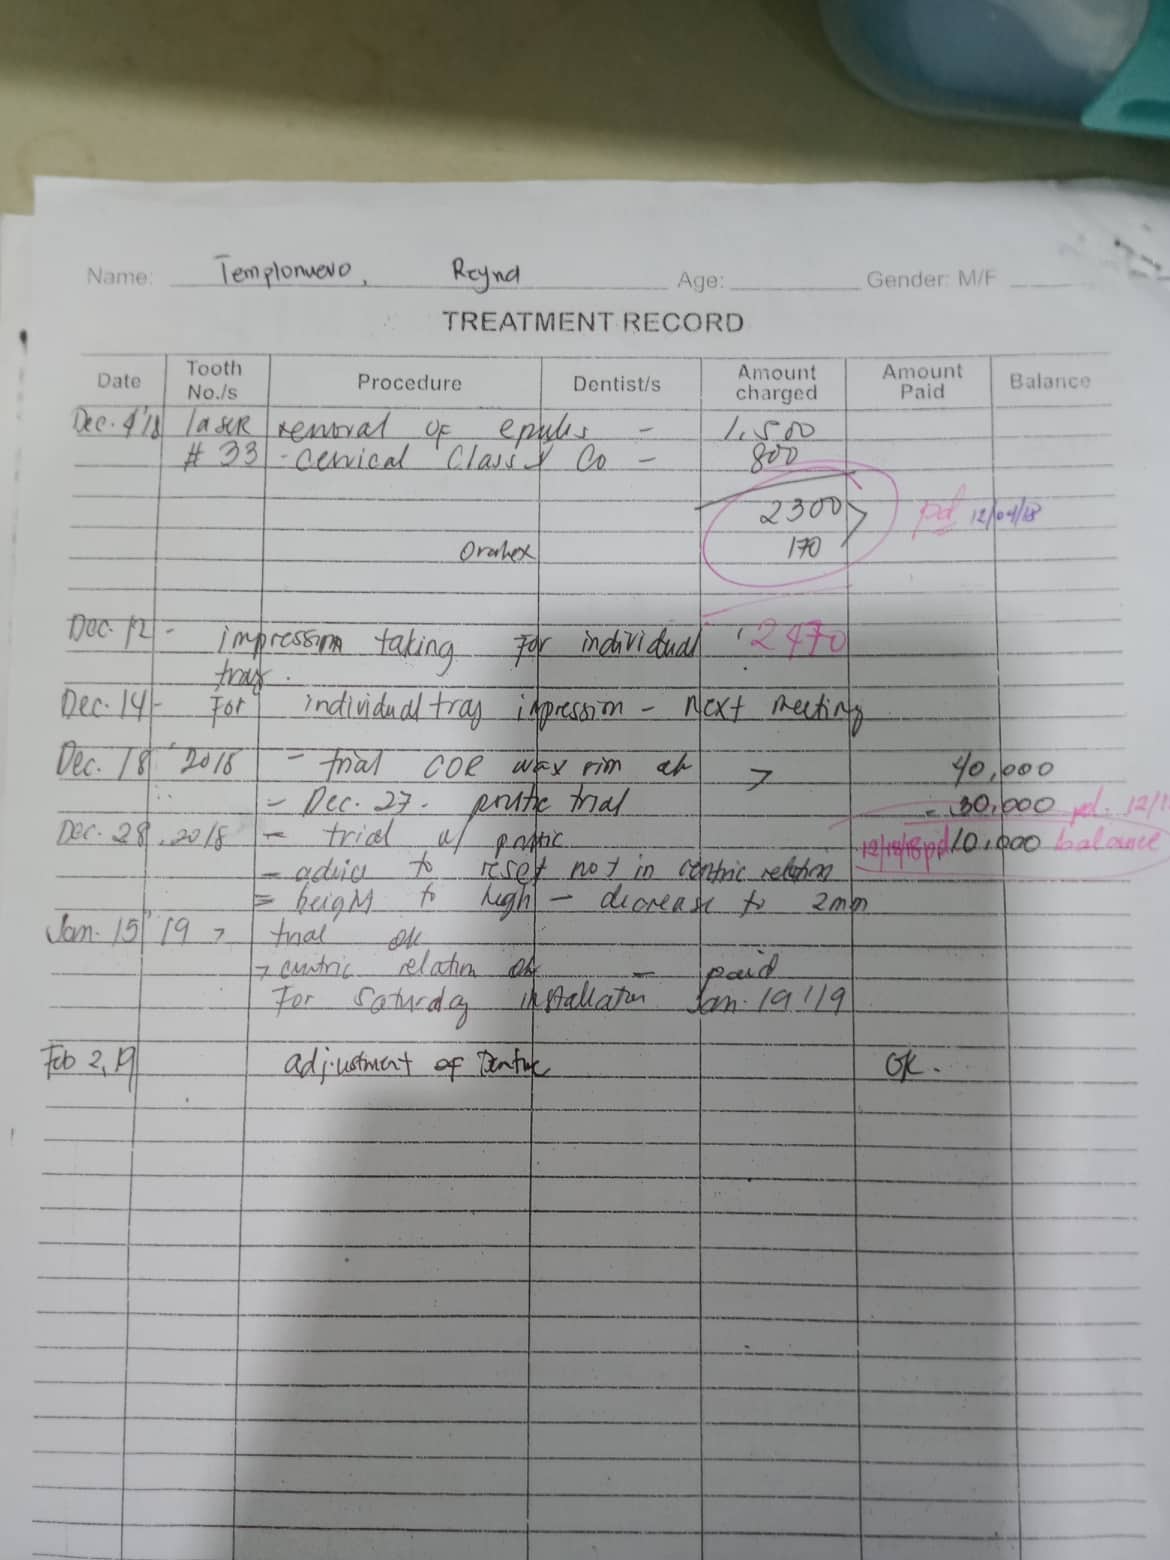 Name: Templonuevo, Reynd Age: Gender: M/F
TREATMENT RECORD
Date Tooth No./s Procedure Dentist/s Amount charged Amount Paid Balance
Dec. 4'18 laser removal of epulis - 1,500
# 33 - Cervical Class V Co - 800
2300 pd 12/04/18
Orahex 170
Dec. 12 - impression taking for individual 2470
tray.
Dec. 14 - For individual tray impression - next meeting
Dec. 18 '2018 - trial COR wax rim ok > 40,000
- Dec. 27 - pontic trial - 30,000 pd. 12/1
Dec. 28, 2018 - trial w/ pontic 12/18/18 pd 10,000 balance
- advice to reset not in centric relation
= height to high - decrease to 2mm
Jan. 15 '19 > trial ok
> centric relation ok - paid
For Saturday installation Jan. 19 '19
Feb 2, 19 adjustment of Denture OK.